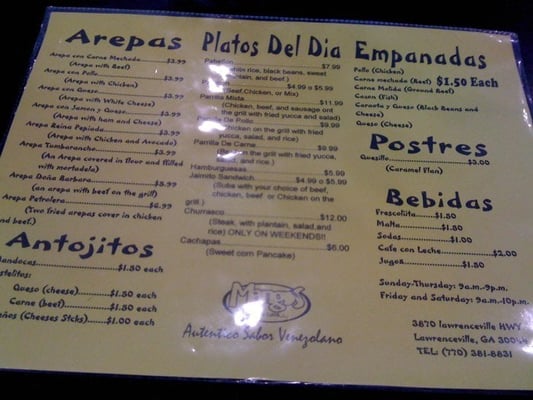 Arepas
Arepa con Carne Mechada $3.99
(Arepa with Beef)
Arepa con Pollo $3.99
(Arepa with Chicken)
Arepa con Queso $3.99
(Arepa with White Cheese)
Arepa con Jamon y Queso $3.99
(Arepa with ham and Cheese)
Arepa Reina Pepiada $3.99
(Arepa with Chicken and Avocado)
Arepa Tumbarancho $3.99
(An Arepa covered in flour and filled
with mortadela)
Arepa Doña Barbara $5.99
(an arepa with beef on the grill)
Arepa Petrolera $6.99
(Two fried arepas cover in chicken
and beef.)
Antojitos
$1.50 each
Queso (cheese) $1.50 each
Carne (beef) $1.50 each
(Cheeses Stcks) $1.00 each
Platos Del Dia
Pabellon $7.99
white rice, black beans, sweet
plantain, and beef.)
$4.99 o $5.99
(Beef, Chicken, or Mix)
Parrilla Mixta $11.99
(Chicken, beef, and sausage ont
the grill with fried yucca and salad)
Parrilla De Pollo $9.99
(Chicken on the grill with fried
yucca, salad, and rice)
Parrilla De Carne $9.99
(Beef on the grill with fried yucca,
salad, and rice.)
Hamburguesas $5.99
Jaimito Sandwich $4.99 o $5.99
(Subs with your choice of beef,
chicken, beef or Chicken on the
grill.)
Churrasco $12.00
(Steak, with plantain, salad, and
rice) ONLY ON WEEKENDS!!
Cachapas $6.00
(Sweet corn Pancake)
Autentico Sabor Venezolano
Empanadas
Pollo (Chicken)
Carne mechada (Beef) $1.50 Each
Carne Molida (Ground Beef)
Cazon (Fish)
Caraota y Queso (Black Beans and
Cheese)
Queso (Cheese)
Postres
Quesillo $3.00
(Caramel Flan)
Bebidas
Frescolita $1.50
Malta $1.50
Sodas $1.00
Cafe con Leche $2.00
Jugos $1.50
Sunday-Thursday: 9a.m.-9p.m.
Friday and Saturday: 9a.m.-10p.m.
3870 lawrenceville HWY
Lawrenceville, GA 30044
TEL: (770) 381-8831